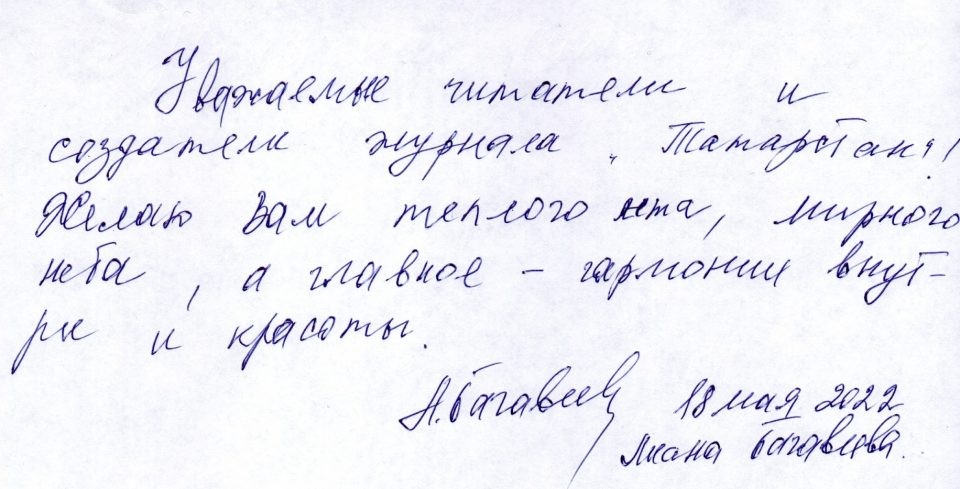 Уважаемые читатели и
создатели журнала „Татарстан"!
Желаю Вам теплого лета, мирного
неба, а главное - гармонии внут-
ри и красоты.
18 мая 2022
Лиана Багавиева.